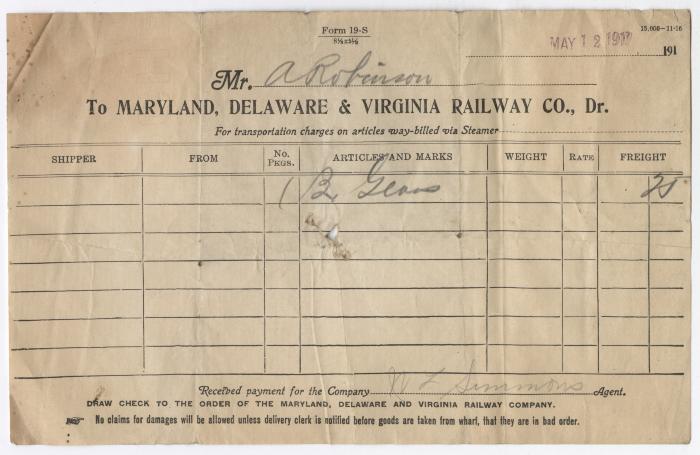 Form 19-S
8½x5½
15,000-11-16
MAY 12 1917
191
Mr. A Robinson
To MARYLAND, DELAWARE & VIRGINIA RAILWAY CO., Dr.
For transportation charges on articles way-billed via Steamer
SHIPPER FROM No. PKGS. ARTICLES AND MARKS WEIGHT RATE FREIGHT
1 25
Received payment for the Company W L Simmons Agent.
DRAW CHECK TO THE ORDER OF THE MARYLAND, DELAWARE AND VIRGINIA RAILWAY COMPANY.
No claims for damages will be allowed unless delivery clerk is notified before goods are taken from wharf, that they are in bad order.